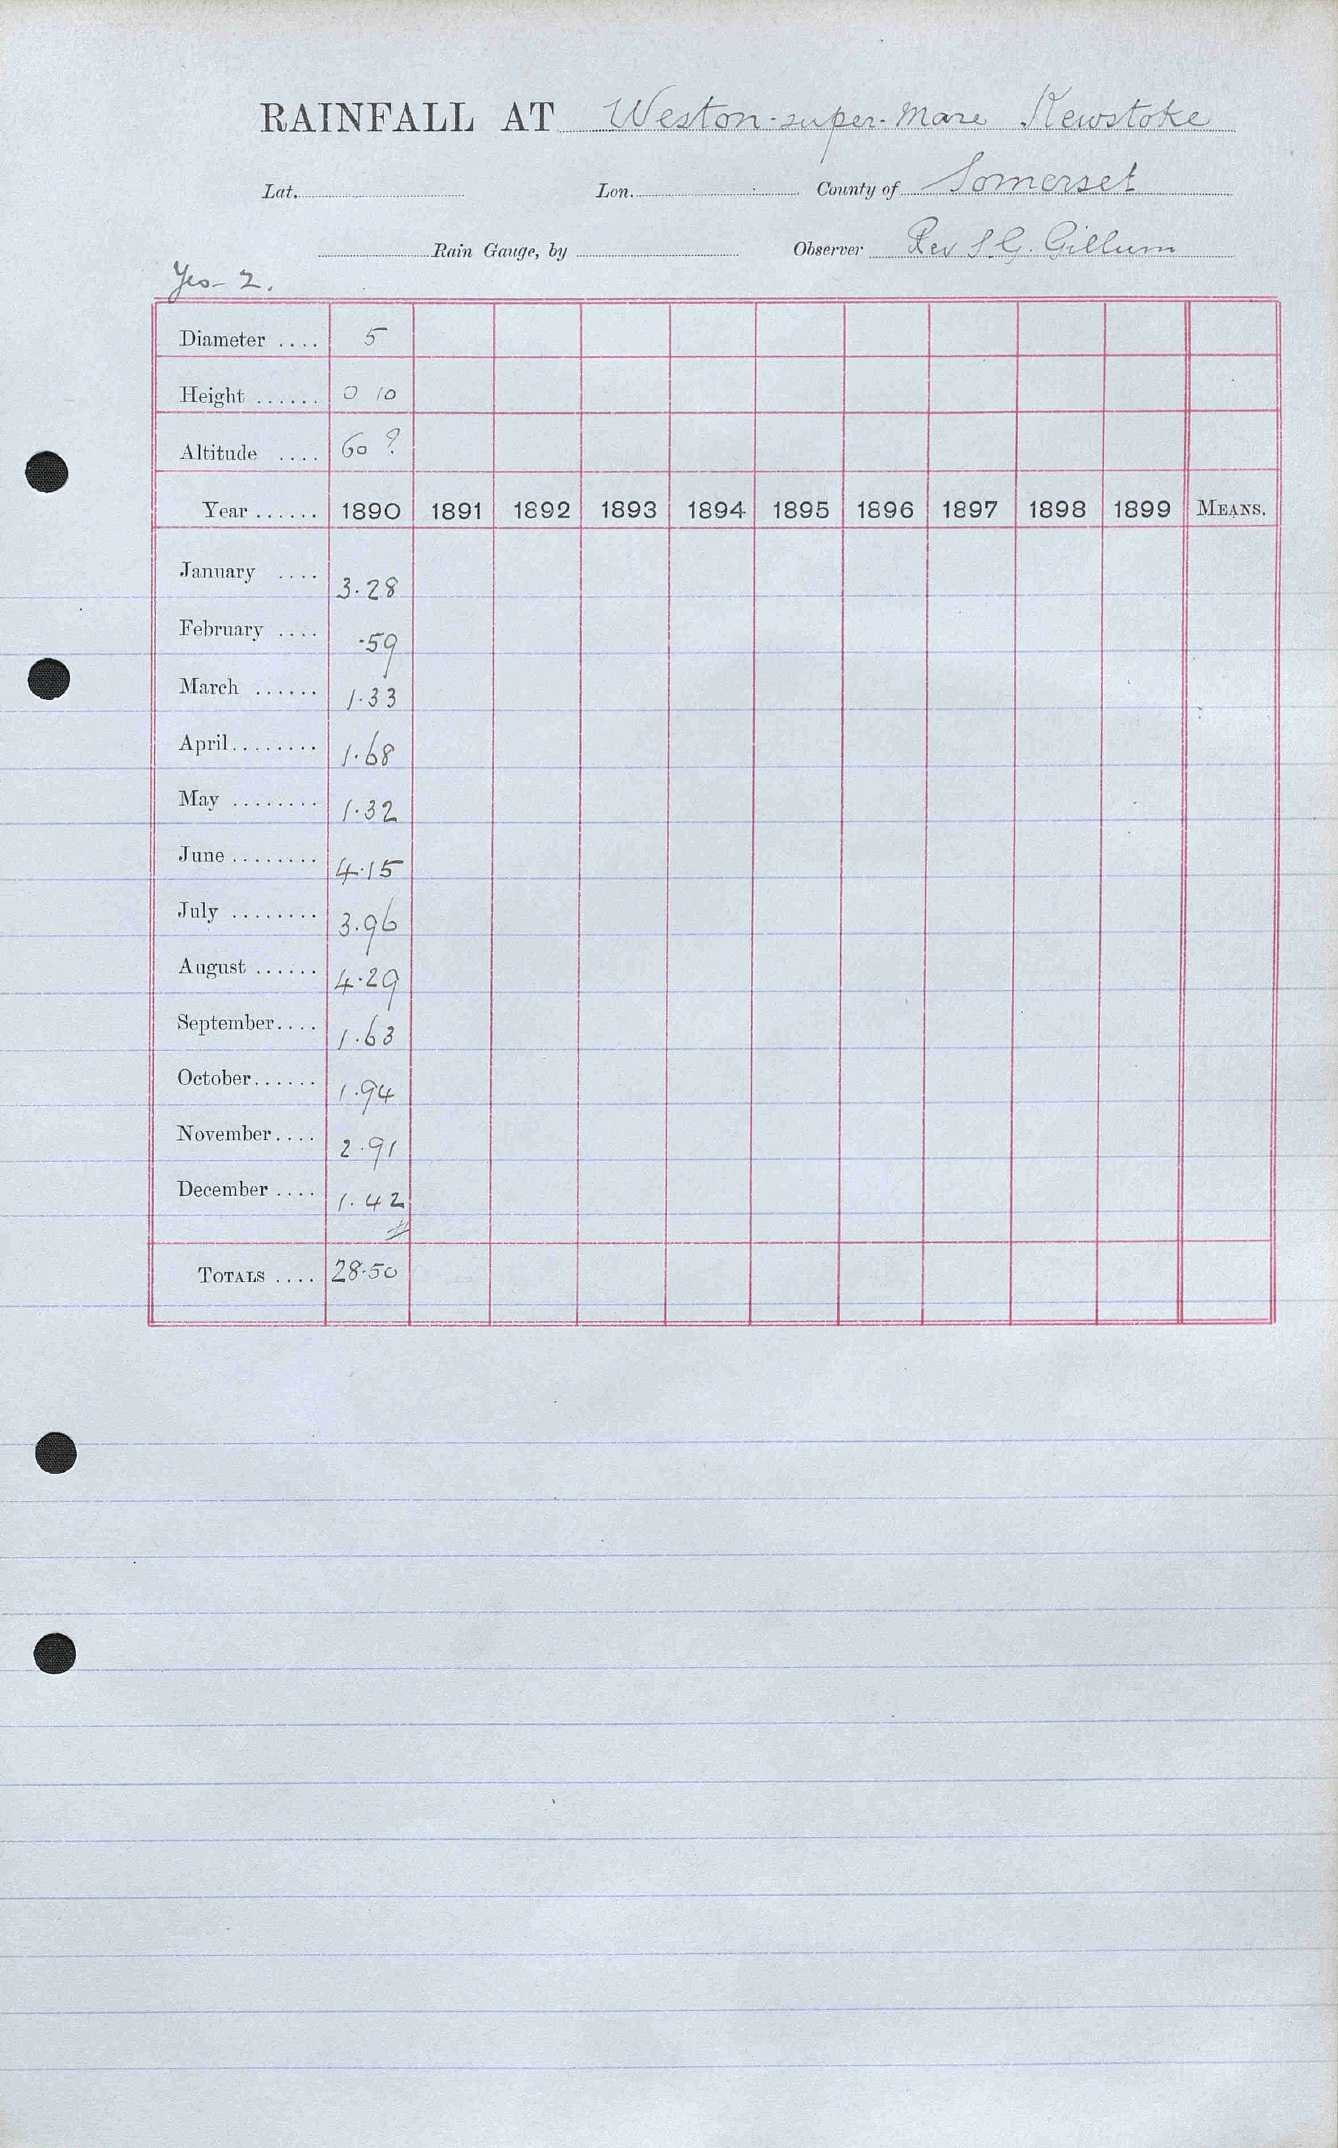 RAINFALL AT Weston-super-Mare Kewstoke
Lat. Lon. County of Somerset
Rain Gauge, by Observer Rev S.G. Gillum
Yeo- 2.
Diameter .... 5
Height ...... 0 10
Altitude .... 60 ?
Year ...... 1890 1891 1892 1893 1894 1895 1896 1897 1898 1899 MEANS.
January .... 3.28
February .... .59
March ...... 1.33
April ........ 1.68
May ........ 1.32
June ........ 4.15
July ........ 3.96
August ...... 4.29
September .... 1.63
October ...... 1.94
November .... 2.91
December .... 1.42
TOTALS .... 28.50